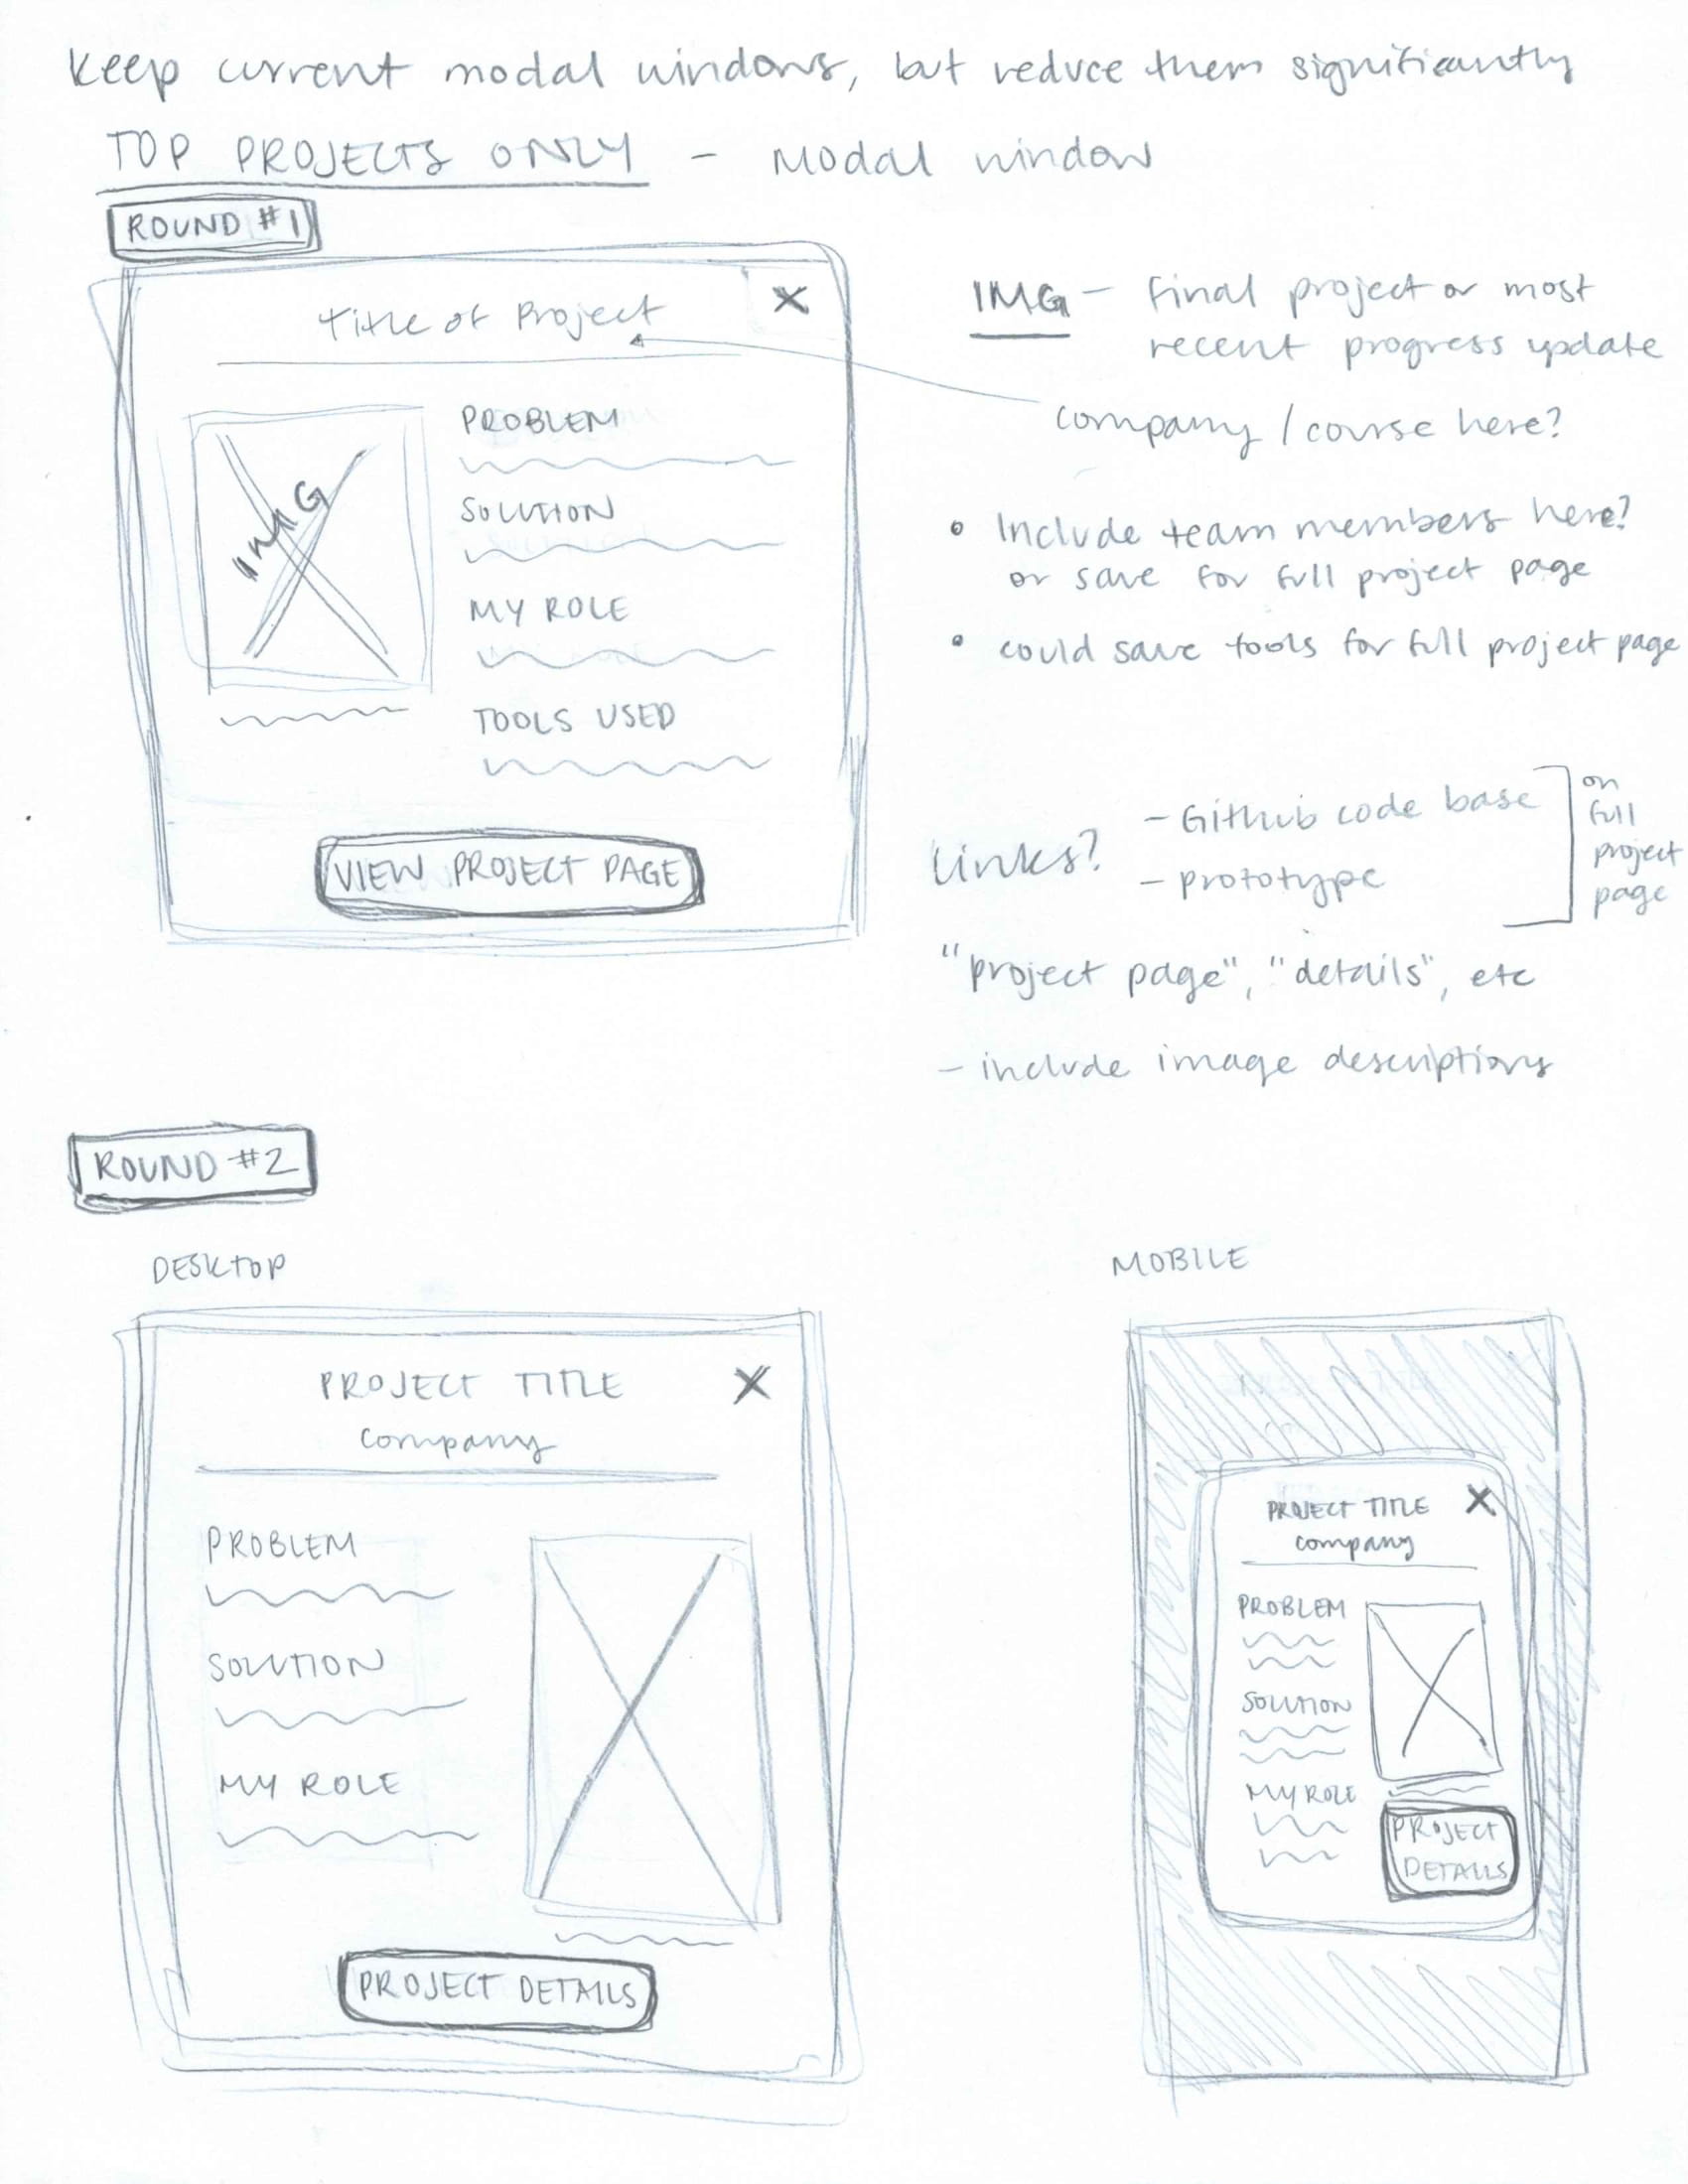 Keep current modal windows, but reduce them significantly
TOP PROJECTS ONLY - Modal window
ROUND #1
Title of Project X
IMG
PROBLEM
SOLUTION
MY ROLE
TOOLS USED
VIEW PROJECT PAGE
IMG - Final project or most
recent progress update
company / course here?
• Include team members here?
or save for full project page
• could save tools for full project page
Links?
- Github code base
- prototype
on
full
project
page
"project page", "details", etc
- include image descriptions
ROUND #2
DESKTOP
PROJECT TITLE X
company
PROBLEM
SOLUTION
MY ROLE
PROJECT DETAILS
MOBILE
PROJECT TITLE X
company
PROBLEM
SOLUTION
MY ROLE
PROJECT
DETAILS